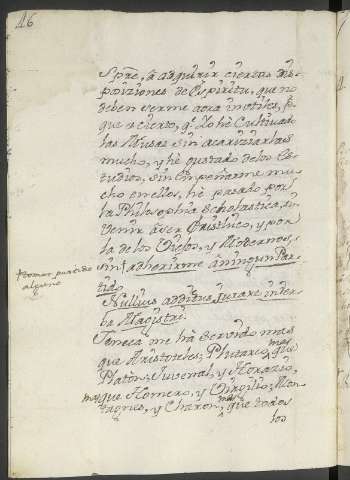 46
Spre, â adquirir ciertas dis-
posiziones de Espiritu, que no
deben serme aora inotiles, por
que es cierto, q.e Yo hè Cultivado
las Musas sin acariziarlas
mucho, y hè gustado delos Es-
tudios, sin empeñarme mu-
cho en ellos, hè pasado por
la Philosophia Scholastica, sin
Venir à ser Eristhico, y por
la de los Viejos, y Modernos,
sin adherirme à ningun Par-
tido
tomar partido
alguno
Nullius addictus jurare in ver-
ba Magistri.
Seneca me hà servido mas
que Aristoteles; Plutarco, mas que
Platòn; Juvenal, y Horazio,
mas que Homero, y Virgilio; Mon-
tagne, y Charon, mas que todos
los